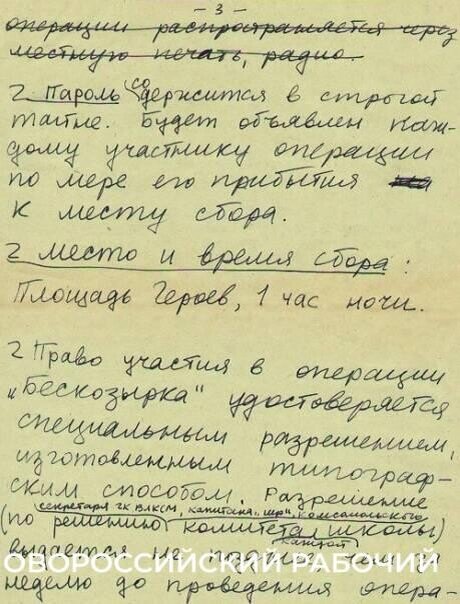 - 3 -
операции распространяется через
местную печать, радио.
2 Пароль содержится в строгой
тайне. Будет объявлен каж-
дому участнику операции
по мере его прибытия
к месту сбора.
2 Место и время сбора:
Площадь Героев, 1 час ночи.
2 Право участия в операции
„Бескозырка" удостоверяется
специальным разрешением,
изготовленным типограф-
ским способом. Разрешение
секретаря ГК ВЛКСМ, капитана „шр", комсомольского
(по решению комитета школы)
выдается не позднее чем за
ОВОРОССИЙСКИЙ РАБОЧИЙ
неделю до проведения опера-